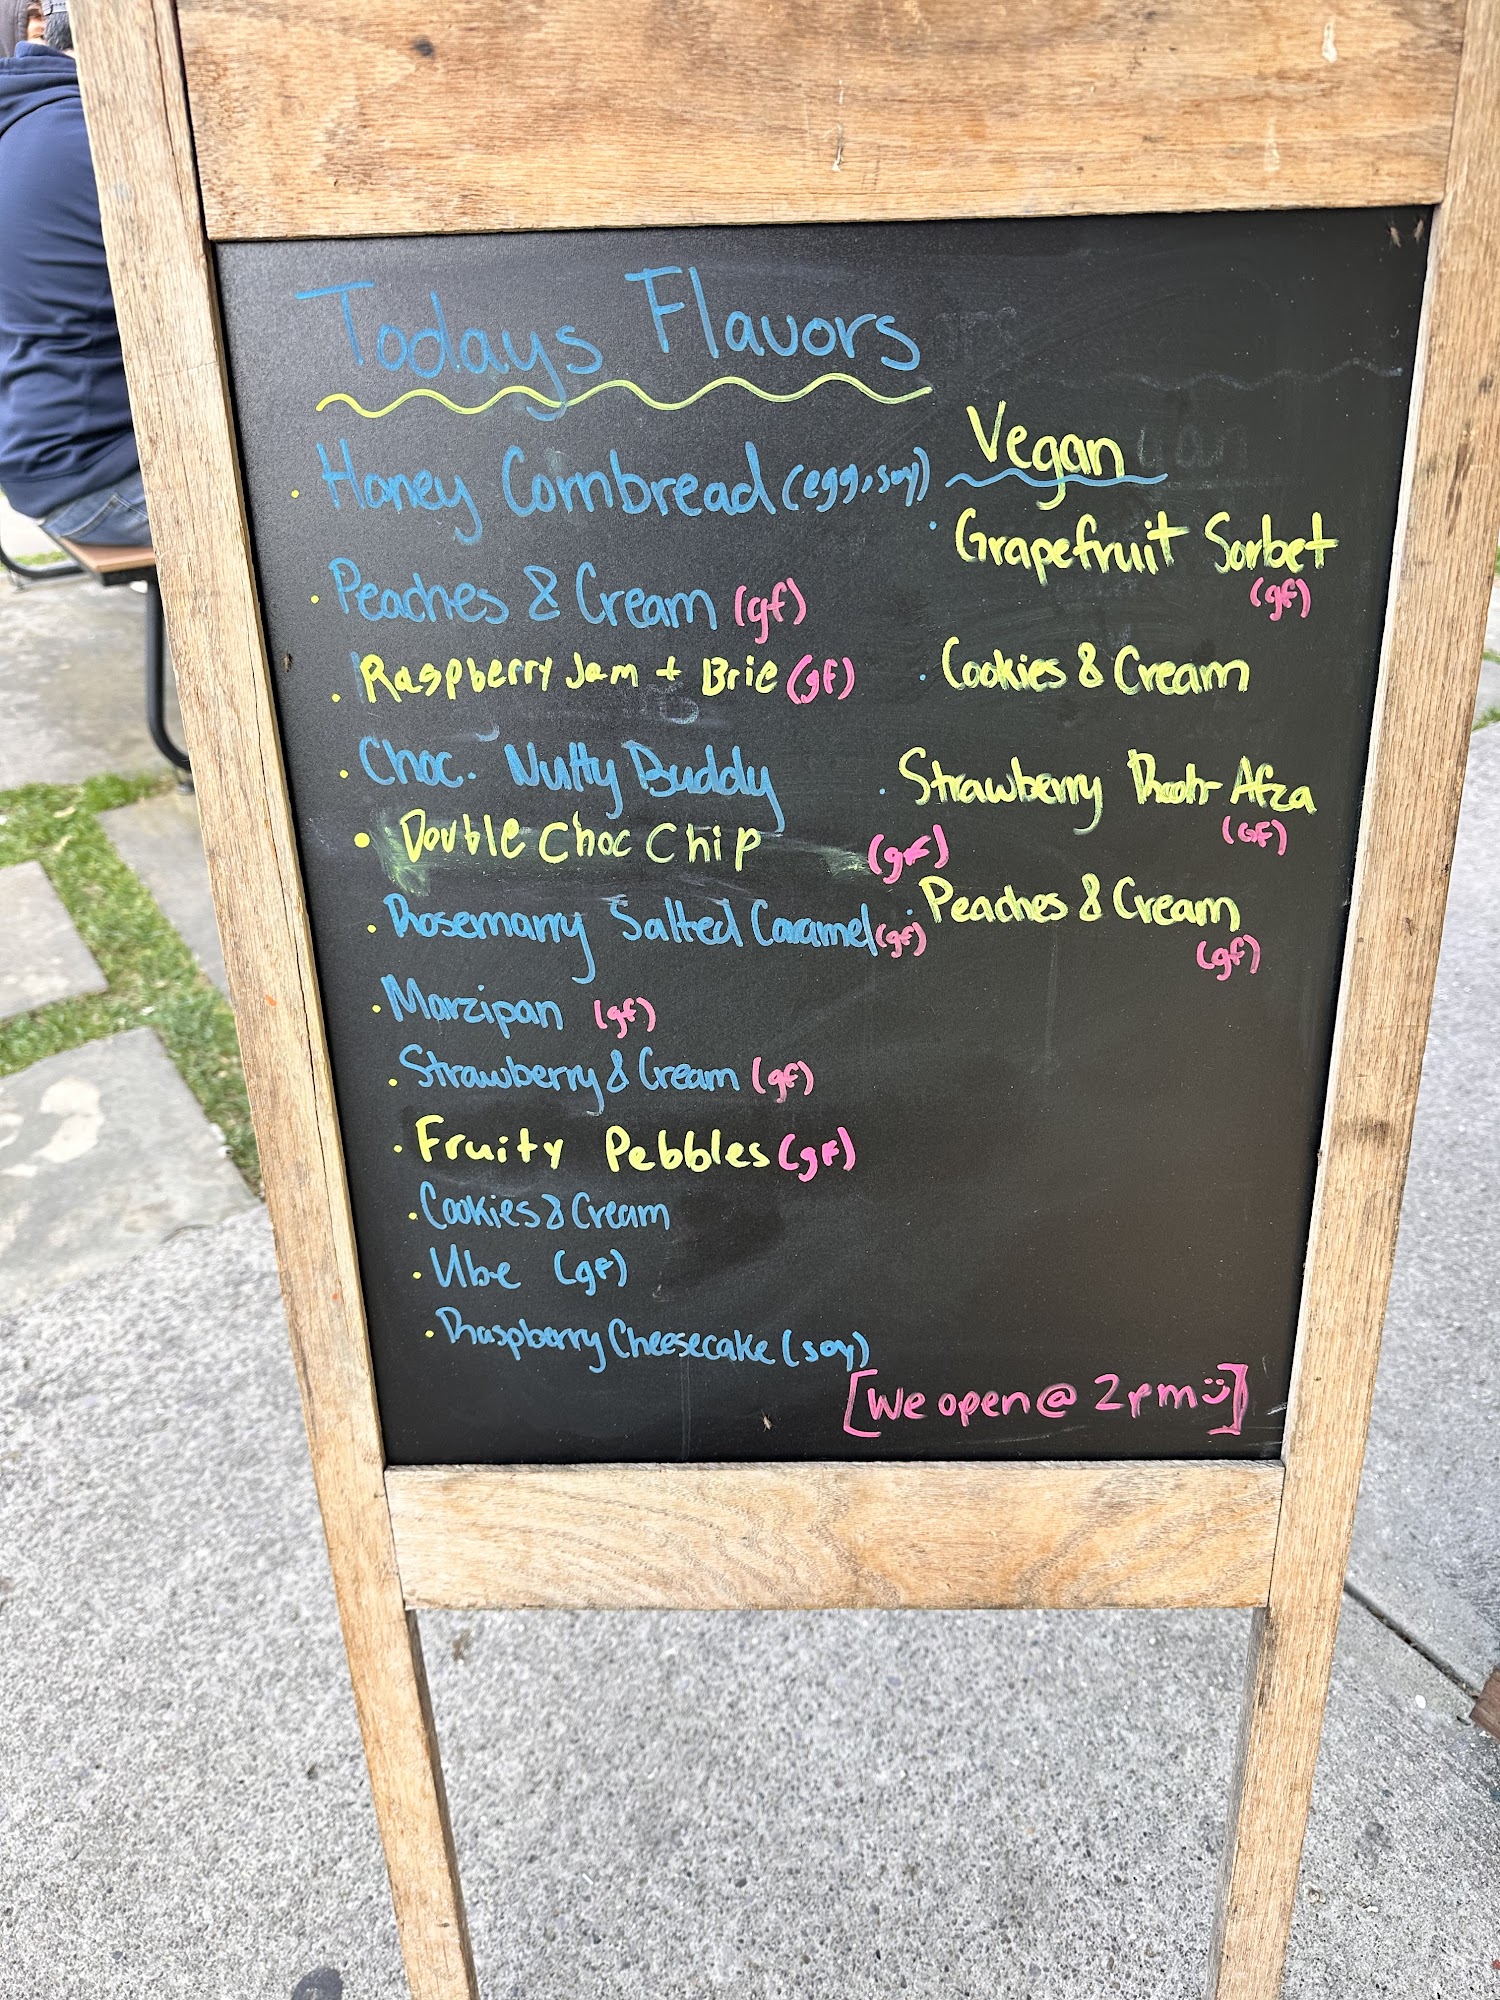 Todays Flavors
· Honey Cornbread (egg, soy)
· Peaches & Cream (gf)
· Raspberry Jam + Brie (gf)
· Choc. Nutty Buddy
· Double Choc Chip (gf)
· Rosemarry Salted Caramel (gf)
· Marzipan (gf)
· Strawberry & Cream (gf)
· Fruity Pebbles (gf)
· Cookies & Cream
· Ube (gf)
· Raspberry Cheesecake (soy)
Vegan
· Grapefruit Sorbet
(gf)
· Cookies & Cream
· Strawberry Rooh-Afza
(GF)
· Peaches & Cream
(gf)
[We open @ 2pm ü]